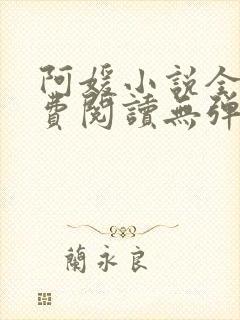 阿媛小说全
費閱讀無彈
蘭永良